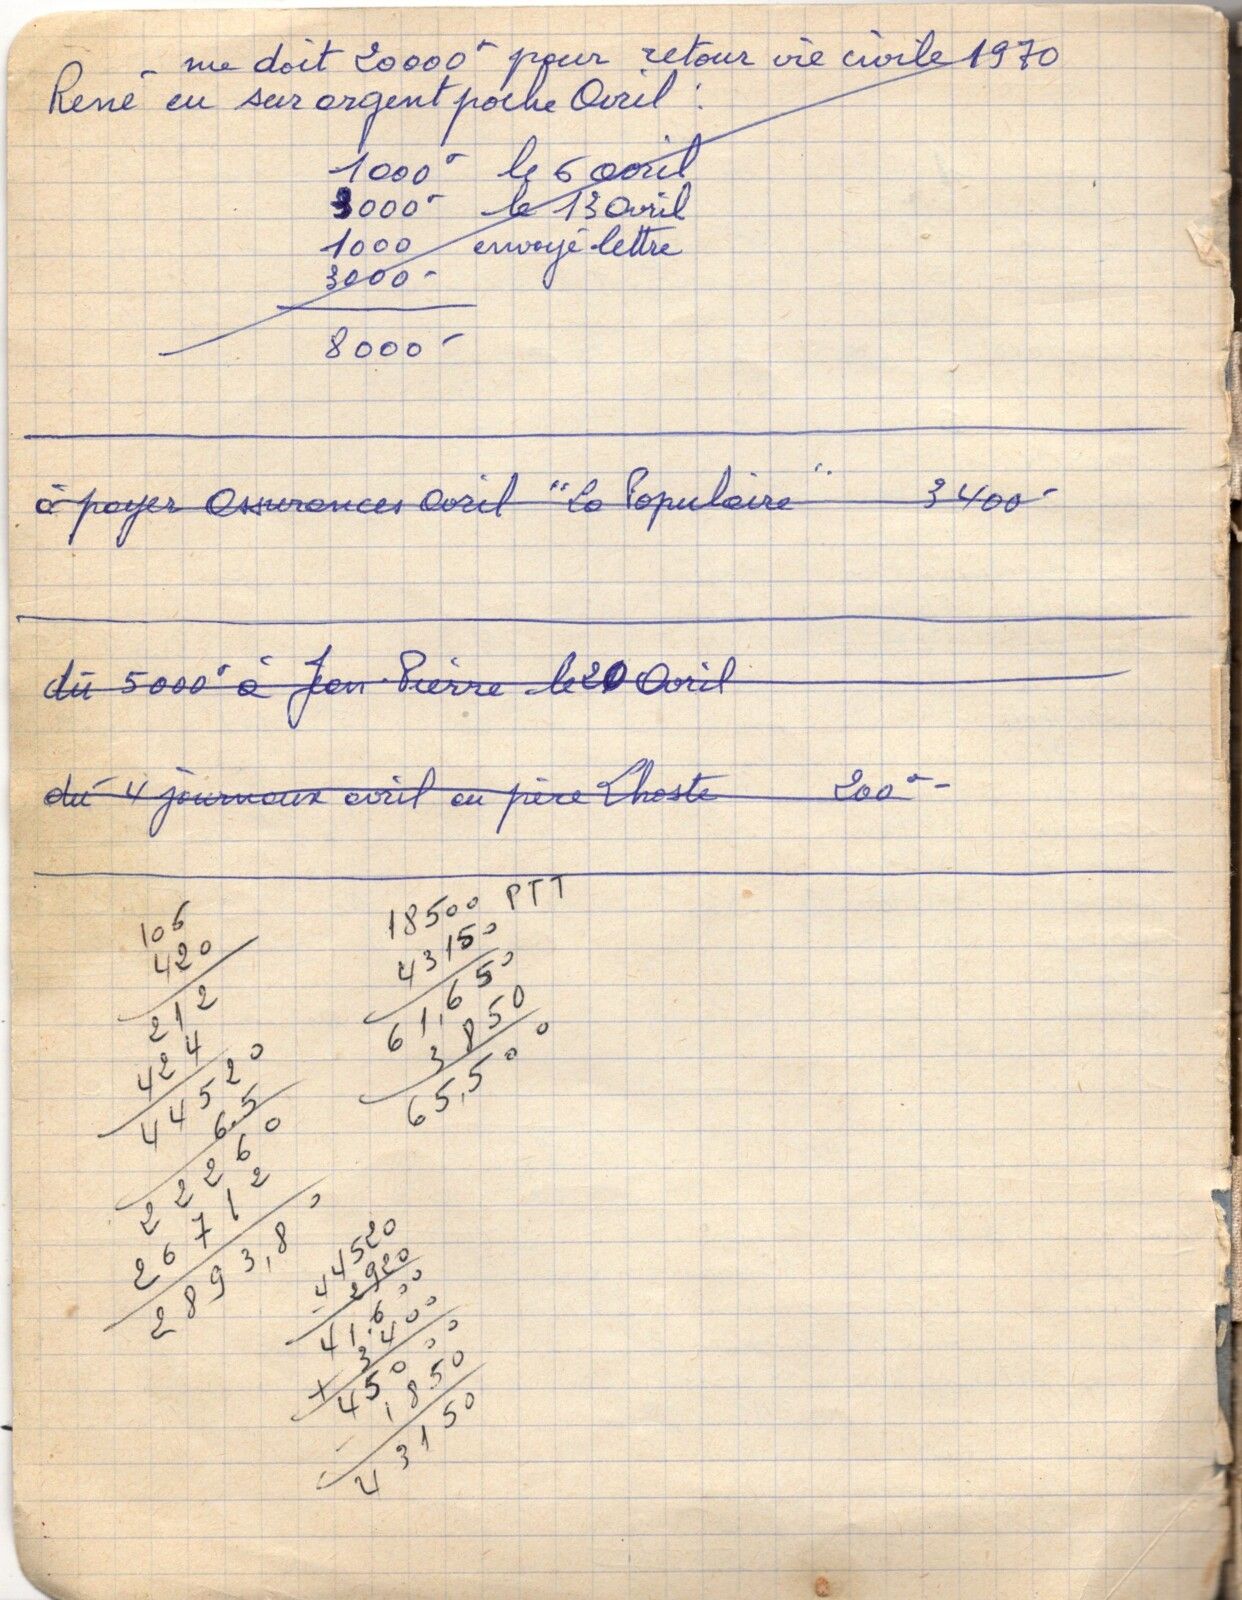 me doit 20000- pour retour vie civile 1970
René eu sur argent poche Avril :
1000- le 6 avril
3000- le 13 Avril
1000 envoyé lettre
3000-
8000-
à payer Assurances Avril "La Populaire" 3400-
dû 5000- à Jean-Pierre le 20 Avril
dû 4 journaux avril au père Lhoste 200-
106
420
212
424
44520
6.5
22260
26712
2893,80
18500 PTT
43150
61,650
3850
65,500
44520
- 2920
41.600
+ 3400
45000
- 1850
43150